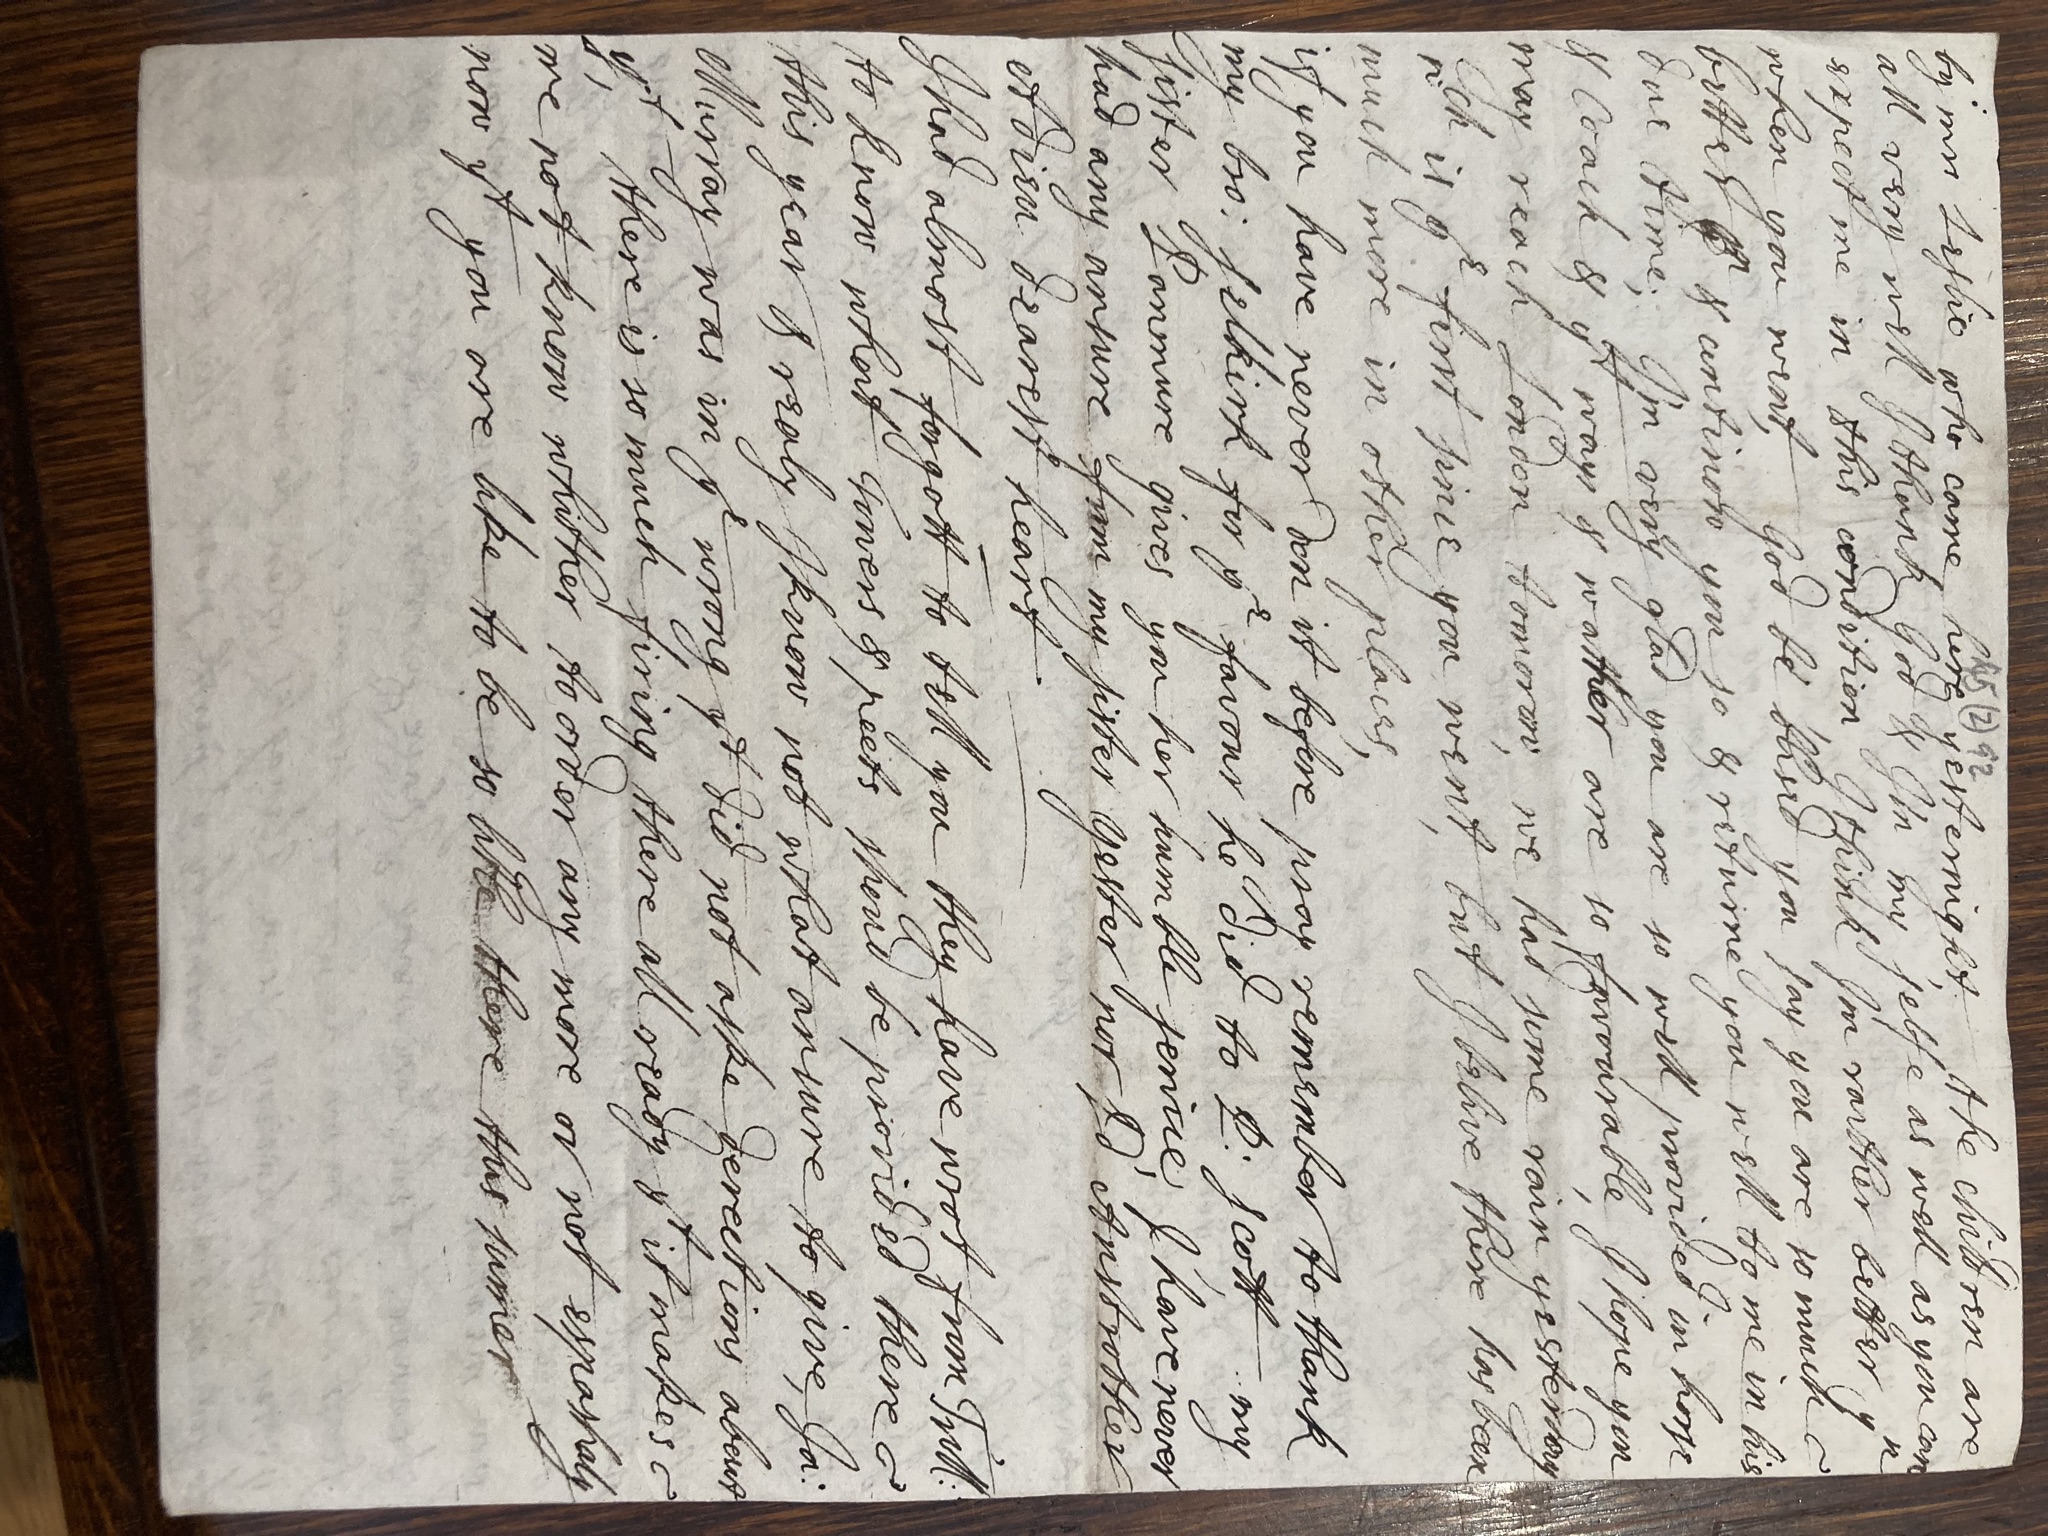 45 (2) 92
by mr Leslie who came here yesternight, the children are
all very well I thank God & I'm my selfe as well as you can
expect me in this condition, I think I'm raither better yn
when you went, God be blised you say you are so much
better & continow you so & returne you well to me in his
due time; I'm very glad you are so well provided in horse
& Coach & yt ways & wather are so favourable, I hope you
may reach London tomorow, we had some rain yesterday
wch is ye first since you went, but I belive there has been
much more in other places,
if you have never don it before pray remember to thank
my bro: Selkirk for ye favour he did to P: Scott, my
sister Panmure gives you her humble service, I have never
had any ansure from my sister Yester nor Ld Anstrother
Adieu dearest heart
I had almost forgott to tell you they have wrot from Tull:
to know what Towers & peets shoud be provided there
this year & realy I know not what ansure to give, Ja:
Murray was in ye wrong yt did not aske derections about
yt, there is so much firing there all ready yt it makes
me not know whither to order any more or not espashaly
now yt you are like to be so litle there this sumer